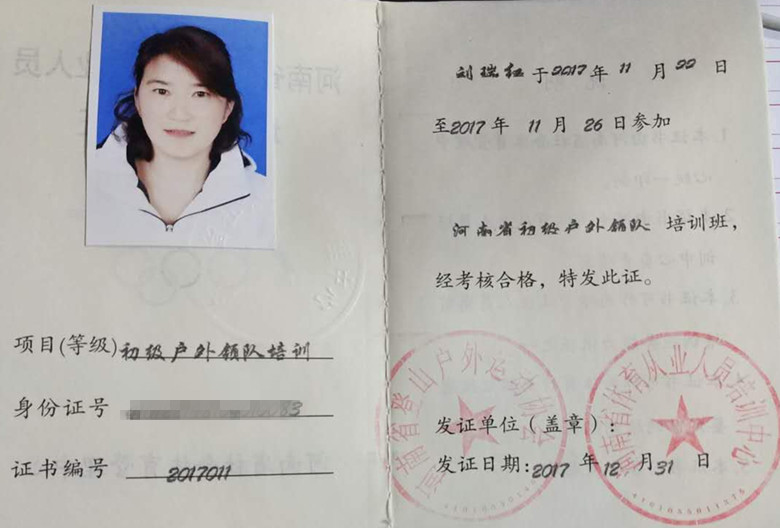 项目(等级) 初级户外领队培训
身份证号
证书编号 2017011
刘瑞红于2017年11月22日
至2017年11月26日参加
河南省初级户外领队 培训班,
经考核合格，特发此证。
发证单位（盖章）:
发证日期:2017年12月31日
河南省登山户外运动协会
河南省体育从业人员培训中心